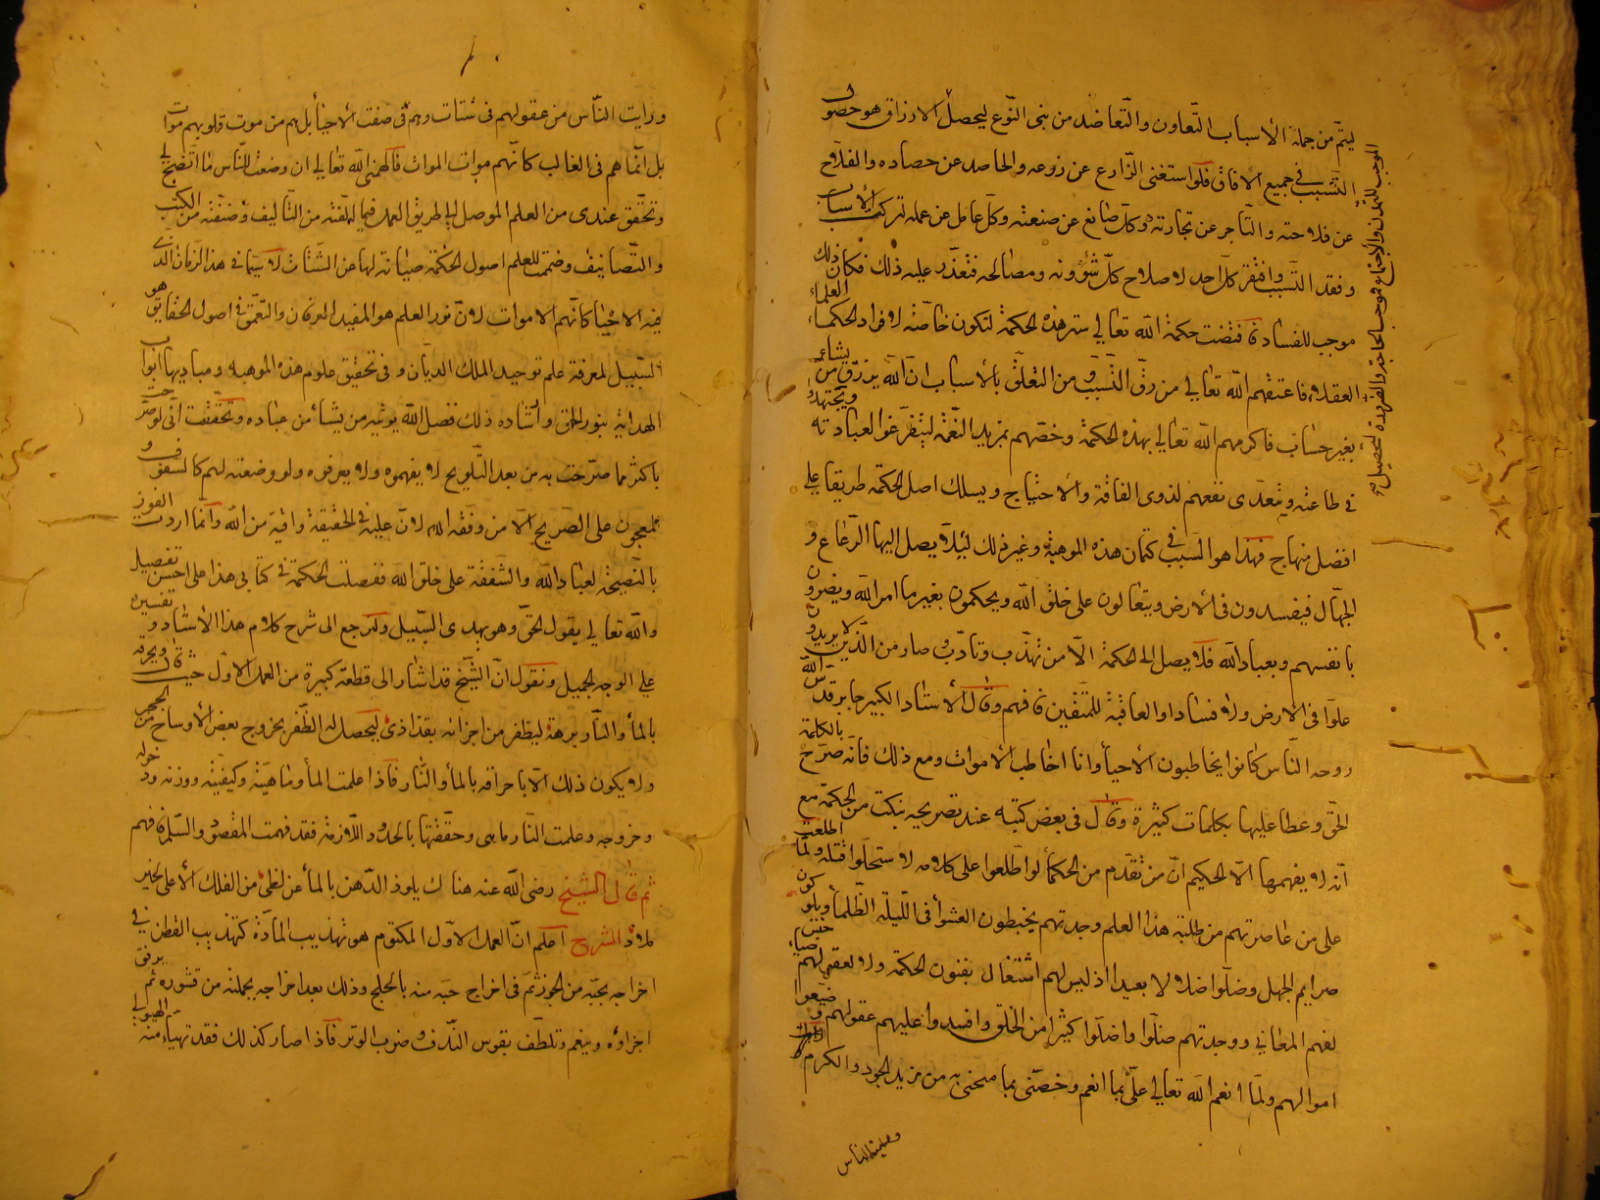 ليتم من جملة الأسباب التعاون والتعاضد من بنى النوع ليحصل الارزاق هو حصول
التسبب فى جميع الافاق فلو استغنى الزارع عن زرعه والحاصد عن حصاده والفلاح
عن فلاحته والتاجر عن تجارته وكل صانع عن صنعته وكل عامل عن عمله لتركت الأسباب
وفقد التسبب وافتقر كل احد لاصلاح كل شؤونه ومصالحه فتعذر عليه ذلك فكان ذلك
موجب للفساد فقضت حكمة الله تعالى ستر هذه الحكمة لتكون خاصة لافراد الحكماء العلماء
العقلاء فاعتقهم الله تعالى من رق التسبب و من التعلق بالأسباب ان الله يرزق من يشاء
بغير حساب فاكرمهم الله تعالى بهذه الحكمة وخصهم بمزيد النعمة ليتفرغوا لعبادته ويجتهدوا
فى طاعته ويتعدى نفعهم لذوى الفاقة والاحتياج ويسلك اصل الحكمة طريقا على
افضل منهاج فهذا هو السبب فى كتمان هذه الموهبة وغير ذلك ليلا يصل اليها الرعاع و
الجهال فيفسدون فى الارض ويتعالون على خلق الله ويحكمون بغير ما امر الله ويضرون
بانفسهم وبعباد الله فلا يصل الى الحكمة الا من تهذب وتادب وصار من الذين لا يريدون
علوا فى الارض ولا فسادا والعاقبة للمتقين فافهم وقال الأستاد الكبير جابر قدس الله
روحه الناس كانوا يخاطبون الأحيا وانا اخاطب الأموات ومع ذلك فانه صرح بالكلمة
الحق وعطا عليها بكلمات كثيرة وقال فى بعض كتبه عند تصريحه بنكت من الحكمة مع
انه لا يفهمها الا الحكيم ان من تقدم من الحكما لو اطلعوا على كلامه لاستحلوا قتله ولما اطلعت
على من عاصرتهم من طلبة هذا العلم وجدتهم يخبطون العشوا فى الليلة الظلما ويلوكون
صرايم الجهل وضلوا ضلالا بعيدا اذ ليس لهم اشتغال بفنون الحكمة ولا لعقولهم
لفهم المعانى ووجدتهم ضلوا واضلوا كثيرا من الخلق وافسدوا عليهم عقولهم و ضيعوا
اموالهم ولما انعم الله تعالى على بما انعم وخصنى بما منحنى به من مزيد الجود والكرم
ورايت الناس من عقولهم فى شتات وهم فى صفت الأحيا بل هم من موت قلوبهم موات
بل انما هم فى الغالب كانهم موات الموات فالهمنى الله تعالى ان وضعت للناس ما اتضح لى
وتحقق عندى من العلم الموصل الى طريق العمل فيما الفته من التاليف وصنفته من الكتب
والتصانيف وضمت للعلم اصول الحكمة صيانة لها عن الشتات لا سيما فى هذا الزمان الذى
فيه الاحيا كانهم الاموات لان نور العلم هو المفيد العرفان والتعمق فى اصول الحقايق هو
السبيل لمعرفة علم توحيد الملك الديان وفى تحقيق علوم هذه الموهبة ومباديها ابواب
الهداية بنور الحق وارشاده ذلك فضل الله يوتيه من يشا من عباده وتحققت انى لو صرحت
باكثر مما صرحت به من بعد التلويح لا يفهموه ولا يعرفوه ولو وضعته لهم كالسقف و
على الصريح الا من وفقه الله لان عليه فى الحقيقة واقية من الله وانما اردت الفوز
بالنصيحة لعباد الله والشفقة على خلق الله ففصلت الحكمة فى كتابى هذا على احسن تفصيل
والله تعالى يقول الحق وهو يهدى السبيل ولنرجع الى شرح كلام هذا الأستاد و تفسيره
على الوجه الجميل ونقول ان الشيخ قد اشار الى قطعة كبيرة من العمل الاول حيث قال ويحرقه
بالما والنار برهة ليظفر من اجزائه بقذا ذى ليحصل له الظفر بخروج بعض الأوساخ من الحجر
ولا يكون ذلك الا باحراقه بالما والنار فاذا علمت الما وماهيته وكيفيته ووزنه ودخوله
وخروجه وعلمت النار ما هى وحققتها بالحدود اللازمة فقد فهمت المقصود والسلام فافهم
ثم قال الشيخ رضى الله عنه هناك يلوذ الدهن بالما عن لظى من الفلك الأعلى لخير
ملاذ الشرح اعلم ان العمل الاول المكتوم هو تهذيب المادة كتهذيب القطن فى
اخراجه بحبه من الجوز ثم فى اخراج حبه منه بالحلج وذلك بعد اخراجه بجملته من قشوره ثم برفق
اجزاؤه وينعم وتلطف بقوس الندف وضرب الوتر فاذا صار كذلك فقد تهياء منه الهيولى